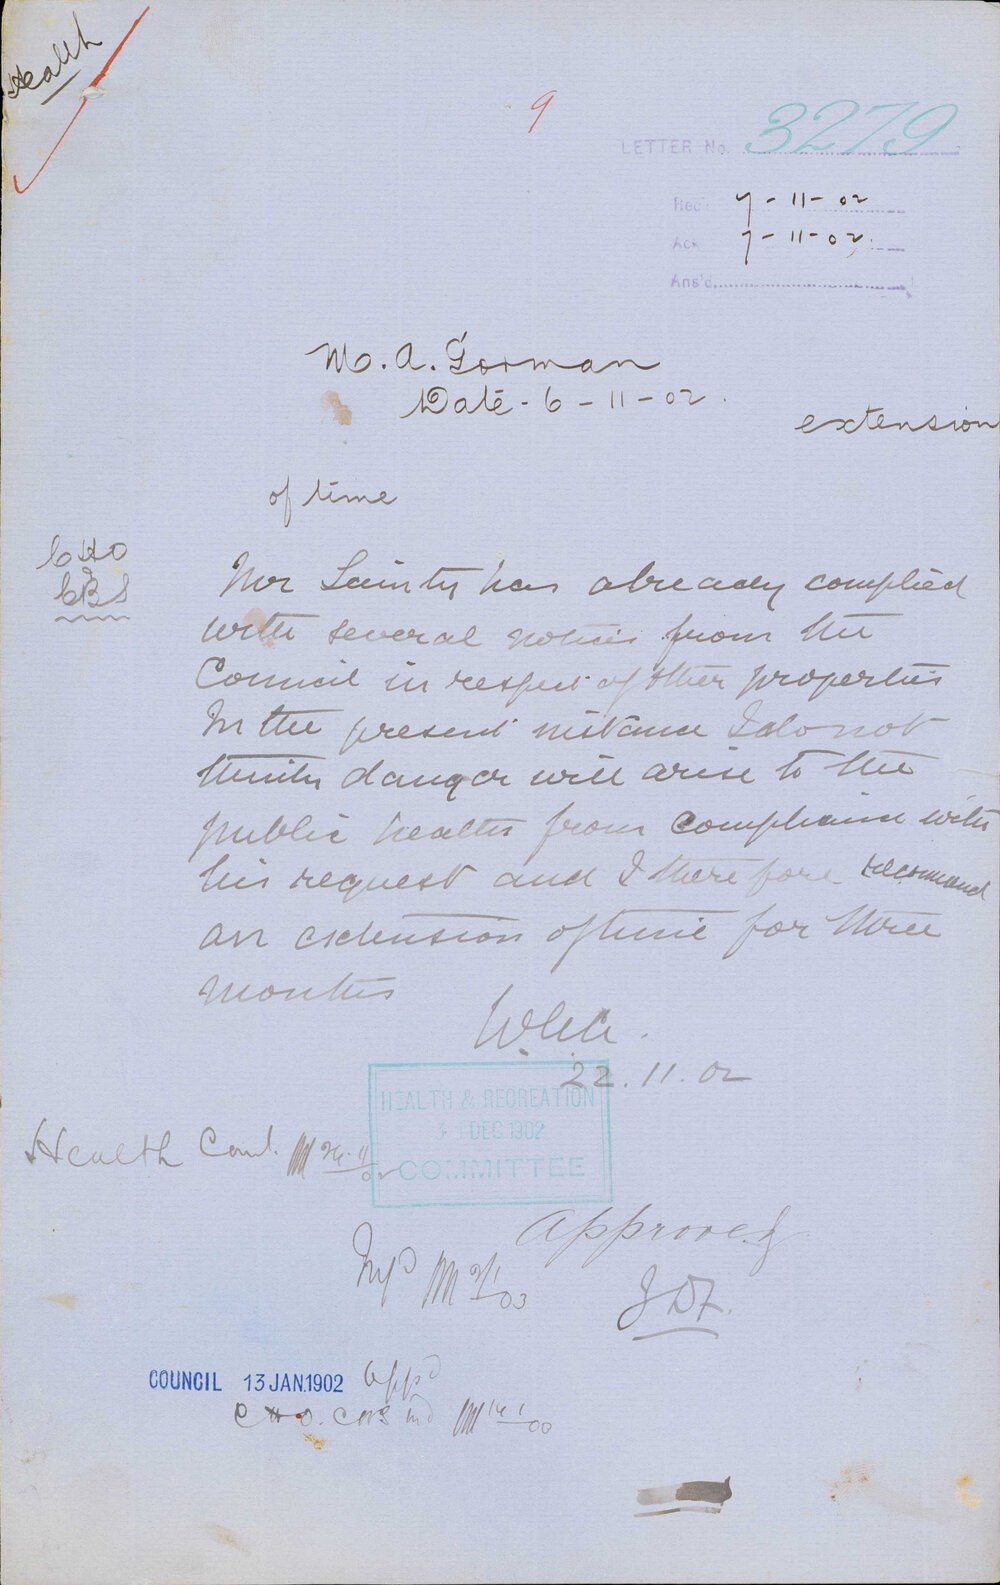 Health
9
LETTER No. 3279
Rec. 7-11-02
Ack 7-11-02.
Ans'd
M. A. Gorman
Date - 6-11-02.
extension
of time
CHO
&
CBS
Mr Sainty has already complied
with several notices from the
Council in respect of other properties
In the present instance I do not
think danger will arise to the
public health from compliance with
his request and I therefore recommend
an extension of time for three
months
22.11.02
HEALTH & RECREATION
DEC 1902
COMMITTEE
Health Comt.
Approved
JDF.
COUNCIL 13 JAN.1902 App'd
C H O.